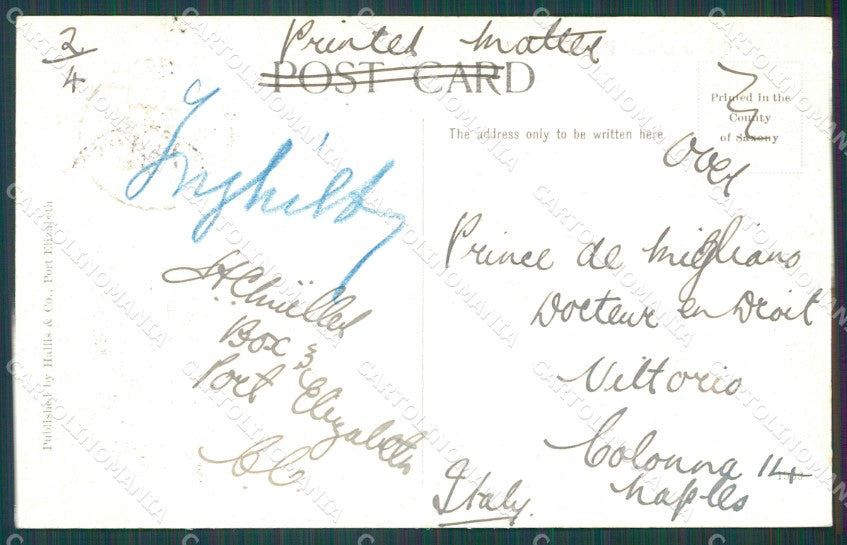 2/4
Printed Matter
POST CARD
Printed in the
County
of Saxony
The address only to be written here.
Over
Published by Hallis & Co., Port Elizabeth
Box 3
Port Elizabeth
C.C.
Prince de Migliano
Docteur en Droit
Vittorio
Colonna 14
Naples
Italy.
CARTOLINOMANIA